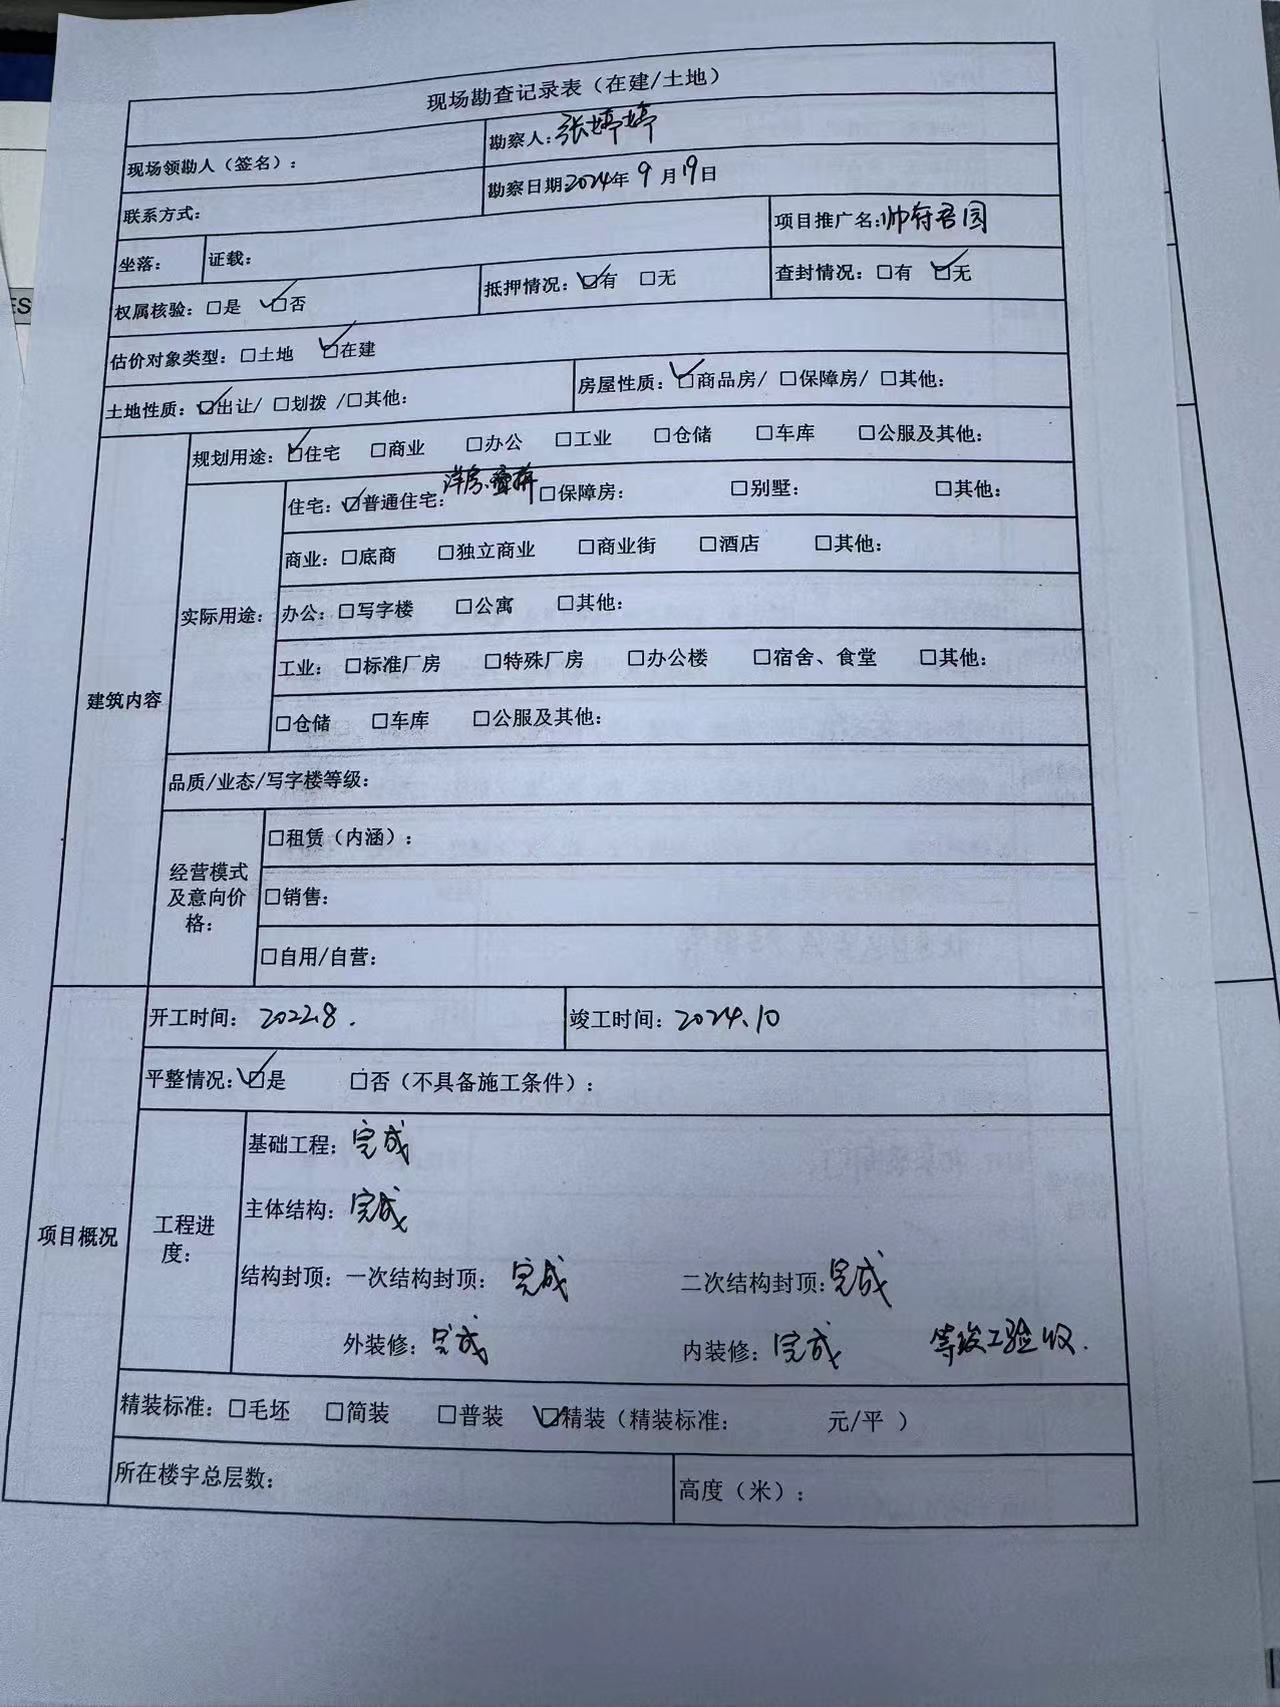 现场勘查记录表（在建/土地）
现场领勘人（签名）：
勘察人：张婷婷
联系方式：
勘察日期2024年9月19日
坐落：
证载：
项目推广名：帅府君园
权属核验：☐是 ☑否
抵押情况：☑有 ☐无
查封情况：☐有 ☑无
估价对象类型：☐土地 ☑在建
土地性质：☑出让/ ☐划拨 /☐其他：
房屋性质：☑商品房/ ☐保障房/ ☐其他：
建筑内容
规划用途：☑住宅 ☐商业 ☐办公 ☐工业 ☐仓储 ☐车库 ☐公服及其他：
实际用途：
住宅：☑普通住宅：洋房、叠拼 ☐保障房： ☐别墅： ☐其他：
商业：☐底商 ☐独立商业 ☐商业街 ☐酒店 ☐其他：
办公：☐写字楼 ☐公寓 ☐其他：
工业：☐标准厂房 ☐特殊厂房 ☐办公楼 ☐宿舍、食堂 ☐其他：
☐仓储 ☐车库 ☐公服及其他：
品质/业态/写字楼等级：
经营模式
及意向价
格：
☐租赁（内涵）：
☐销售：
☐自用/自营：
项目概况
开工时间：2022.8.
竣工时间：2024.10
平整情况：☑是 ☐否（不具备施工条件）：
工程进
度：
基础工程：完成
主体结构：完成
结构封顶：一次结构封顶：完成 二次结构封顶：完成
外装修：完成 内装修：完成 等竣工验收.
精装标准：☐毛坯 ☐简装 ☐普装 ☑精装（精装标准： 元/平 ）
所在楼宇总层数：
高度（米）：